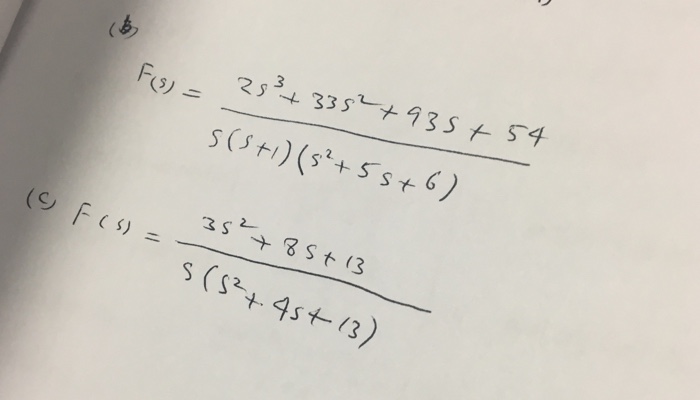 (b)
F(s) = 2s³ + 33s² + 93s + 54
s(s+1)(s² + 5s + 6)
(c) F(s) = 3s² + 8s + 13
s(s² + 4s + 13)